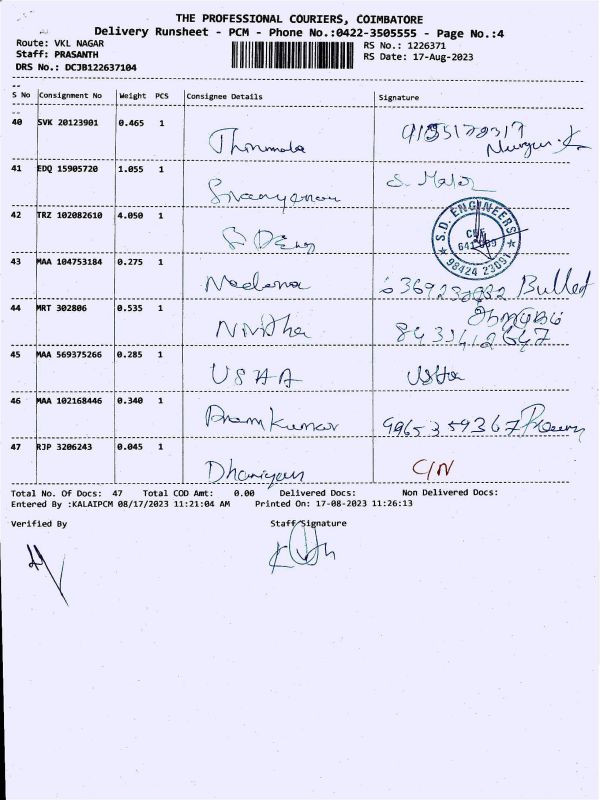 THE PROFESSIONAL COURIERS, COIMBATORE
Delivery Runsheet - PCM - Phone No.:0422-3505555 - Page No.:4
Route: VKL NAGAR
RS No.: 1226371
Staff: PRASANTH
RS Date: 17-Aug-2023
DRS No.: DCJB122637104
S No Consignment No Weight PCS Consignee Details Signature
40 SVK 20123901 0.465 1
Thirumala
41 EDQ 15905720 1.055 1
42 TRZ 102082610 4.050 1
S.D. ENGINEERS
CBE
98424 23091
43 MAA 104753184 0.275 1
Bullet
44 MRT 302806 0.535 1
Nivitha
45 MAA 569375266 0.285 1
USHA Usha
46 MAA 102168446 0.340 1
Prem Kumar 9965359367
47 RJP 3206243 0.045 1
C/N
Total No. Of Docs: 47 Total COD Amt: 0.00 Delivered Docs: Non Delivered Docs:
Entered By :KALAIPCM 08/17/2023 11:21:04 AM Printed On: 17-08-2023 11:26:13
Verified By Staff Signature